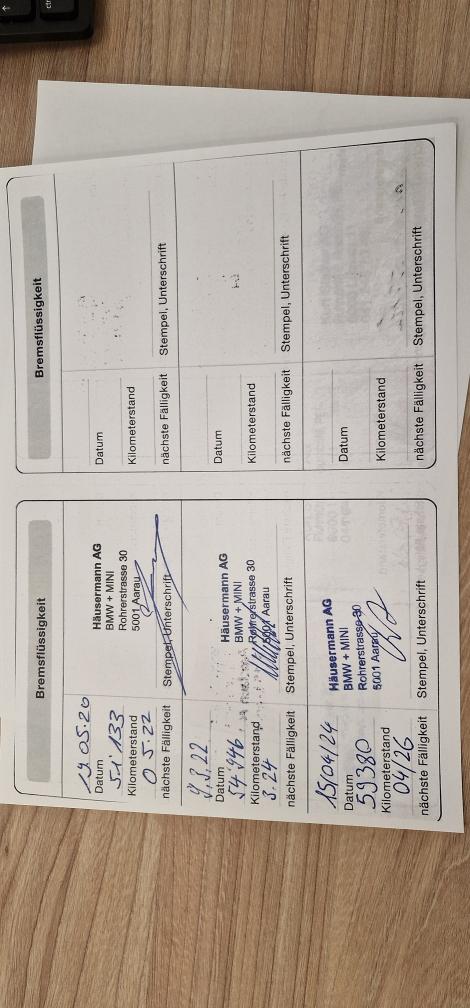 Bremsflüssigkeit
19.05.20
Datum
51'133
Kilometerstand
05.22
nächste Fälligkeit
Häusermann AG
BMW + MINI
Rohrerstrasse 30
5001 Aarau
Stempel, Unterschrift
3.22
Datum
54.946
Kilometerstand
3.24
nächste Fälligkeit
Häusermann AG
BMW + MINI
Rohrerstrasse 30
5001 Aarau
Stempel, Unterschrift
15/04/24
Datum
59380
Kilometerstand
04/26
nächste Fälligkeit
Häusermann AG
BMW + MINI
Rohrerstrasse 30
5001 Aarau
Stempel, Unterschrift
Bremsflüssigkeit
Datum
Kilometerstand
nächste Fälligkeit
Stempel, Unterschrift
Datum
Kilometerstand
nächste Fälligkeit
Stempel, Unterschrift
Datum
Kilometerstand
nächste Fälligkeit
Stempel, Unterschrift